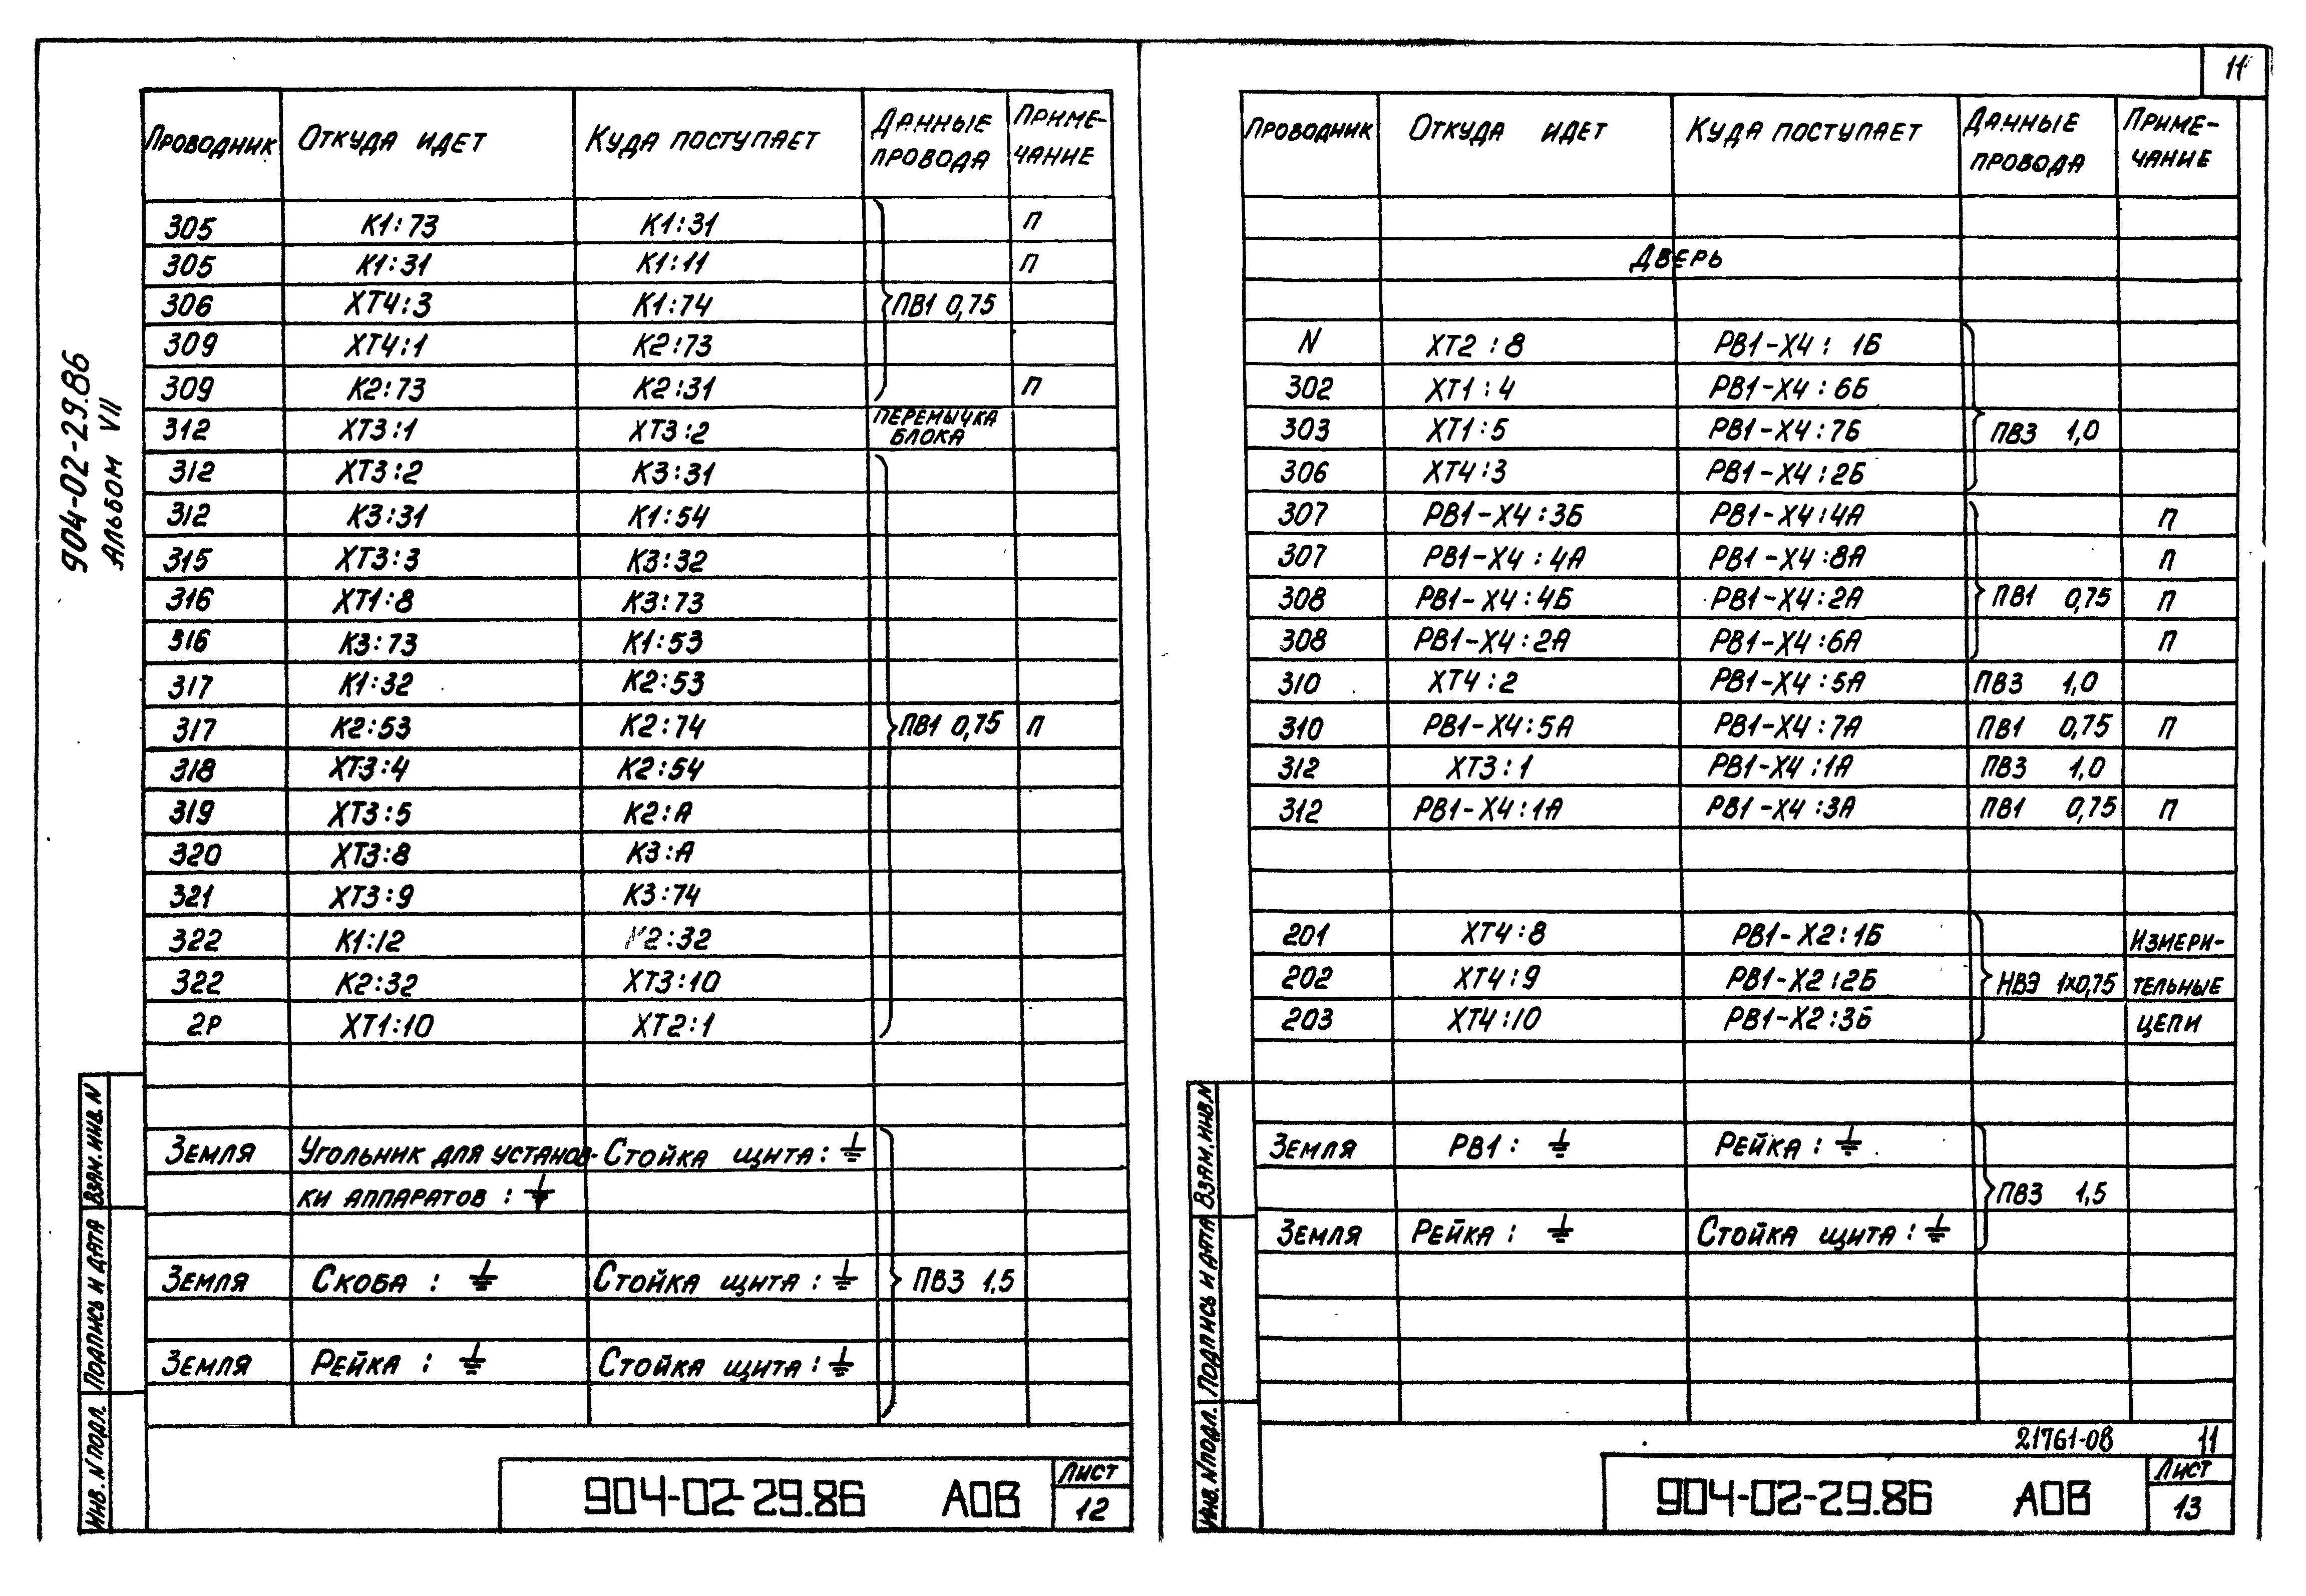 11
904-02-29.86
Альбом VII
Проводник Откуда идет Куда поступает Данные провода Приме-чание
305 К1:73 К1:31 П
305 К1:31 К1:11 П
306 ХТ4:3 К1:74 ПВ1 0,75
309 ХТ4:1 К2:73
309 К2:73 К2:31 П
312 ХТ3:1 ХТ3:2 Перемычка блока
312 ХТ3:2 К3:31
312 К3:31 К1:54
315 ХТ3:3 К3:32
316 ХТ1:8 К3:73
316 К3:73 К1:53
317 К1:32 К2:53
317 К2:53 К2:74 ПВ1 0,75 П
318 ХТ3:4 К2:54
319 ХТ3:5 К2:А
320 ХТ3:8 К3:А
321 ХТ3:9 К3:74
322 К1:12 К2:32
322 К2:32 ХТ3:10
2Р ХТ1:10 ХТ2:1
Земля Угольник для установ- Стойка щита: ⏚
ки аппаратов: ⏚
Земля Скоба: ⏚ Стойка щита: ⏚ ПВ3 1,5
Земля Рейка: ⏚ Стойка щита: ⏚
Инв. N подл. Подпись и дата Взам. инв. N
904-02-29.86 АОВ
Лист
12
Проводник Откуда идет Куда поступает Данные провода Приме-чание
Дверь
N ХТ2:8 РВ1-Х4:1Б
302 ХТ1:4 РВ1-Х4:6Б
303 ХТ1:5 РВ1-Х4:7Б ПВ3 1,0
306 ХТ4:3 РВ1-Х4:2Б
307 РВ1-Х4:3Б РВ1-Х4:4А П
307 РВ1-Х4:4А РВ1-Х4:8А П
308 РВ1-Х4:4Б РВ1-Х4:2А ПВ1 0,75 П
308 РВ1-Х4:2А РВ1-Х4:6А П
310 ХТ4:2 РВ1-Х4:5А ПВ3 1,0
310 РВ1-Х4:5А РВ1-Х4:7А ПВ1 0,75 П
312 ХТ3:1 РВ1-Х4:1А ПВ3 1,0
312 РВ1-Х4:1А РВ1-Х4:3А ПВ1 0,75 П
201 ХТ4:8 РВ1-Х2:1Б Измери-
202 ХТ4:9 РВ1-Х2:2Б НВЭ 1х0,75 тельные
203 ХТ4:10 РВ1-Х2:3Б цепи
Земля РВ1: ⏚ Рейка: ⏚
ПВ3 1,5
Земля Рейка: ⏚ Стойка щита: ⏚
Инв. N подл. Подпись и дата Взам. инв. N
21761-08 11
904-02-29.86 АОВ
Лист
13